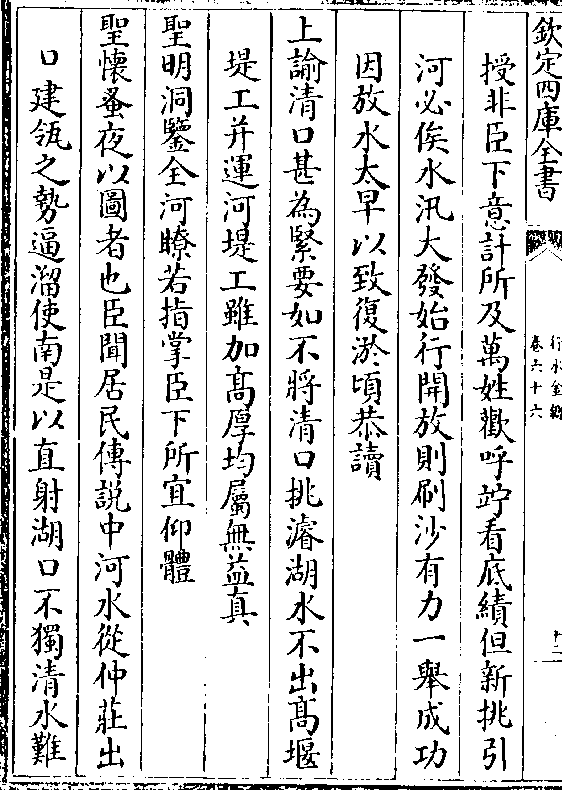 欽定四庫全書
行水金鑑
卷六十六
十二
授非臣下意計所及萬姓歡呼竚看底績但新挑引
河必俟水汛大發始行開放則刷沙有力一舉成功
因放水太早以致復淤頃恭讀
上諭清口甚為緊要如不將清口挑濬湖水不出髙堰
堤工并運河堤工雖加髙厚均屬無益真
聖明洞鑒全河瞭若指掌臣下所宜仰體
聖懷蚤夜以圖者也臣聞居民傳説中河水從仲莊出
口建瓴之勢逼溜使南是以直射湖口不獨清水難